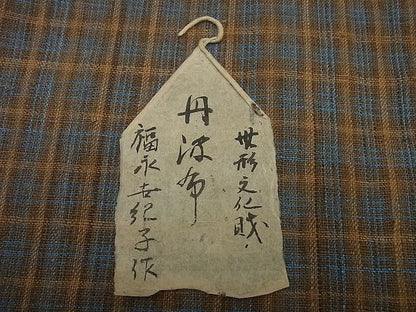 無形文化財
丹波布
福永世紀子作